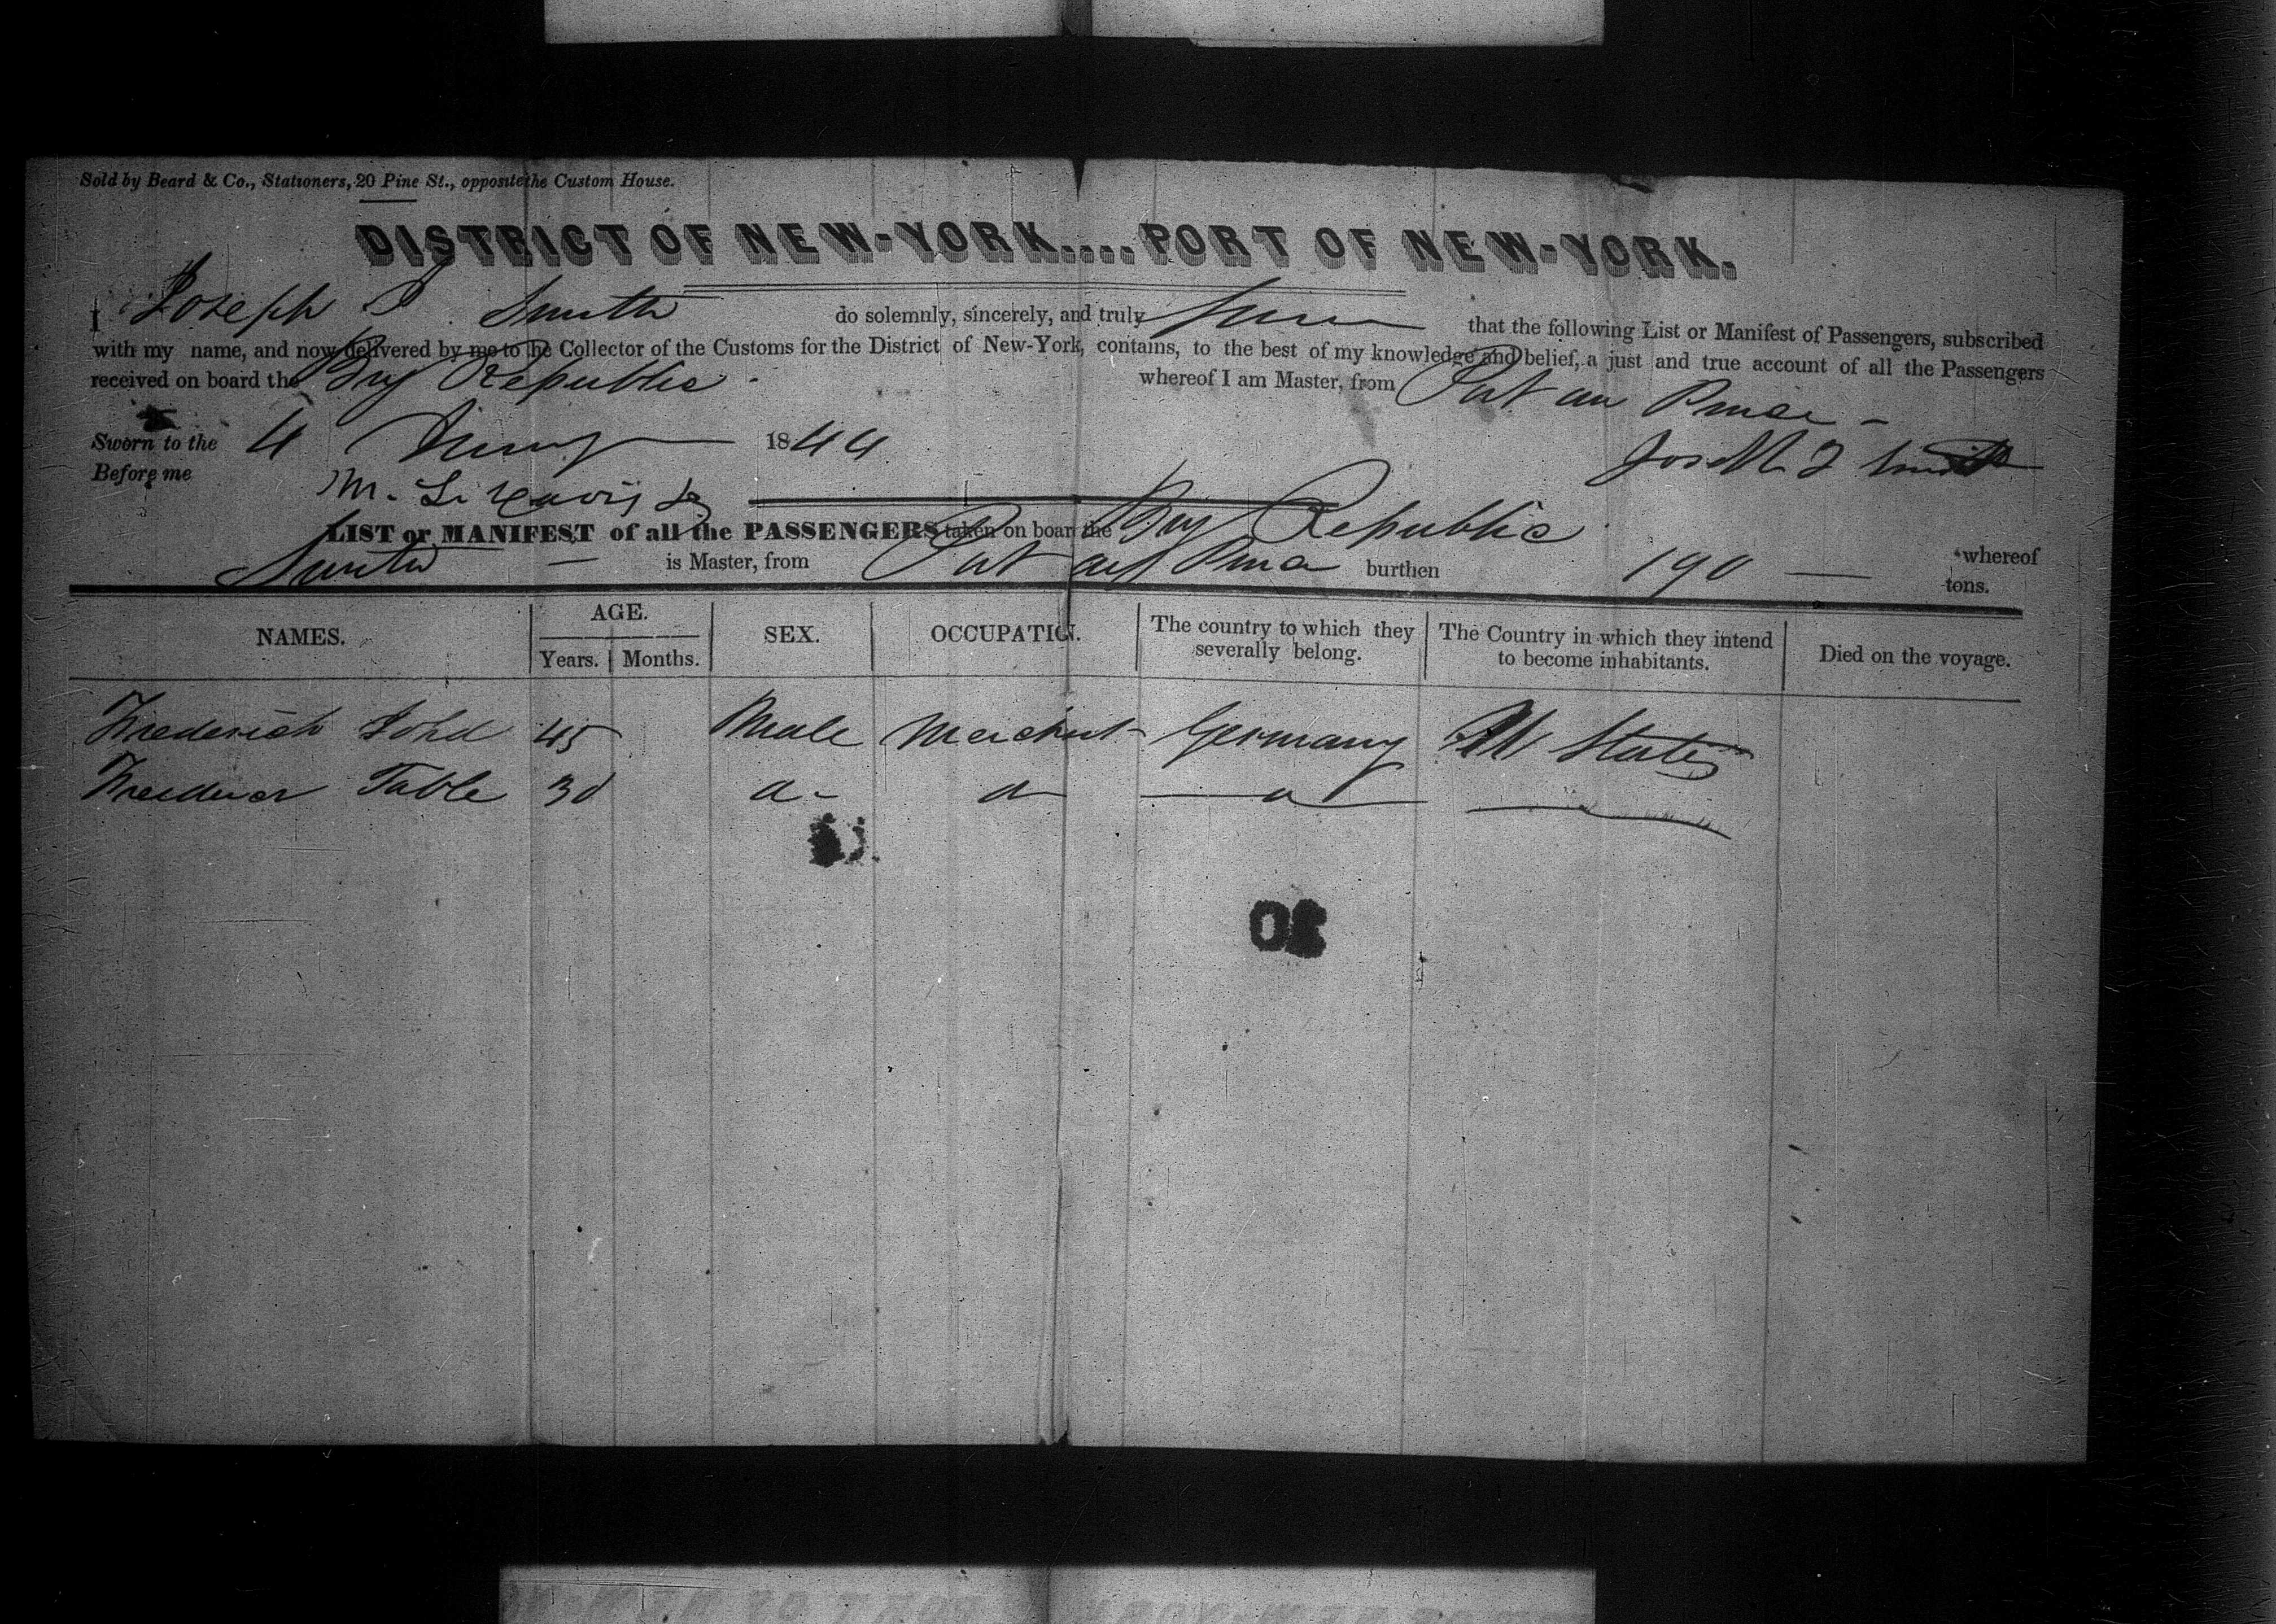 Sold by Beard & Co., Stationers, 20 Pine St., opposite the Custom House.
DISTRICT OF NEW-YORK....PORT OF NEW-YORK.
I Joseph Smith do solemnly, sincerely, and truly that the following List or Manifest of Passengers, subscribed
with my name, and now delivered by me to the Collector of the Customs for the District of New-York, contains, to the best of my knowledge and belief, a just and true account of all the Passengers
received on board the Brig Republic whereof I am Master, from Port au
Sworn to the 4 1844
Before me
LIST or MANIFEST of all the PASSENGERS taken on board the Brig Republic whereof
Smith is Master, from Port au burthen 190 tons.
NAMES. AGE. Years. Months. SEX. OCCUPATION. The country to which they severally belong. The Country in which they intend to become inhabitants. Died on the voyage.
Frederich 45 Male Merchant Germany U States
Table 30